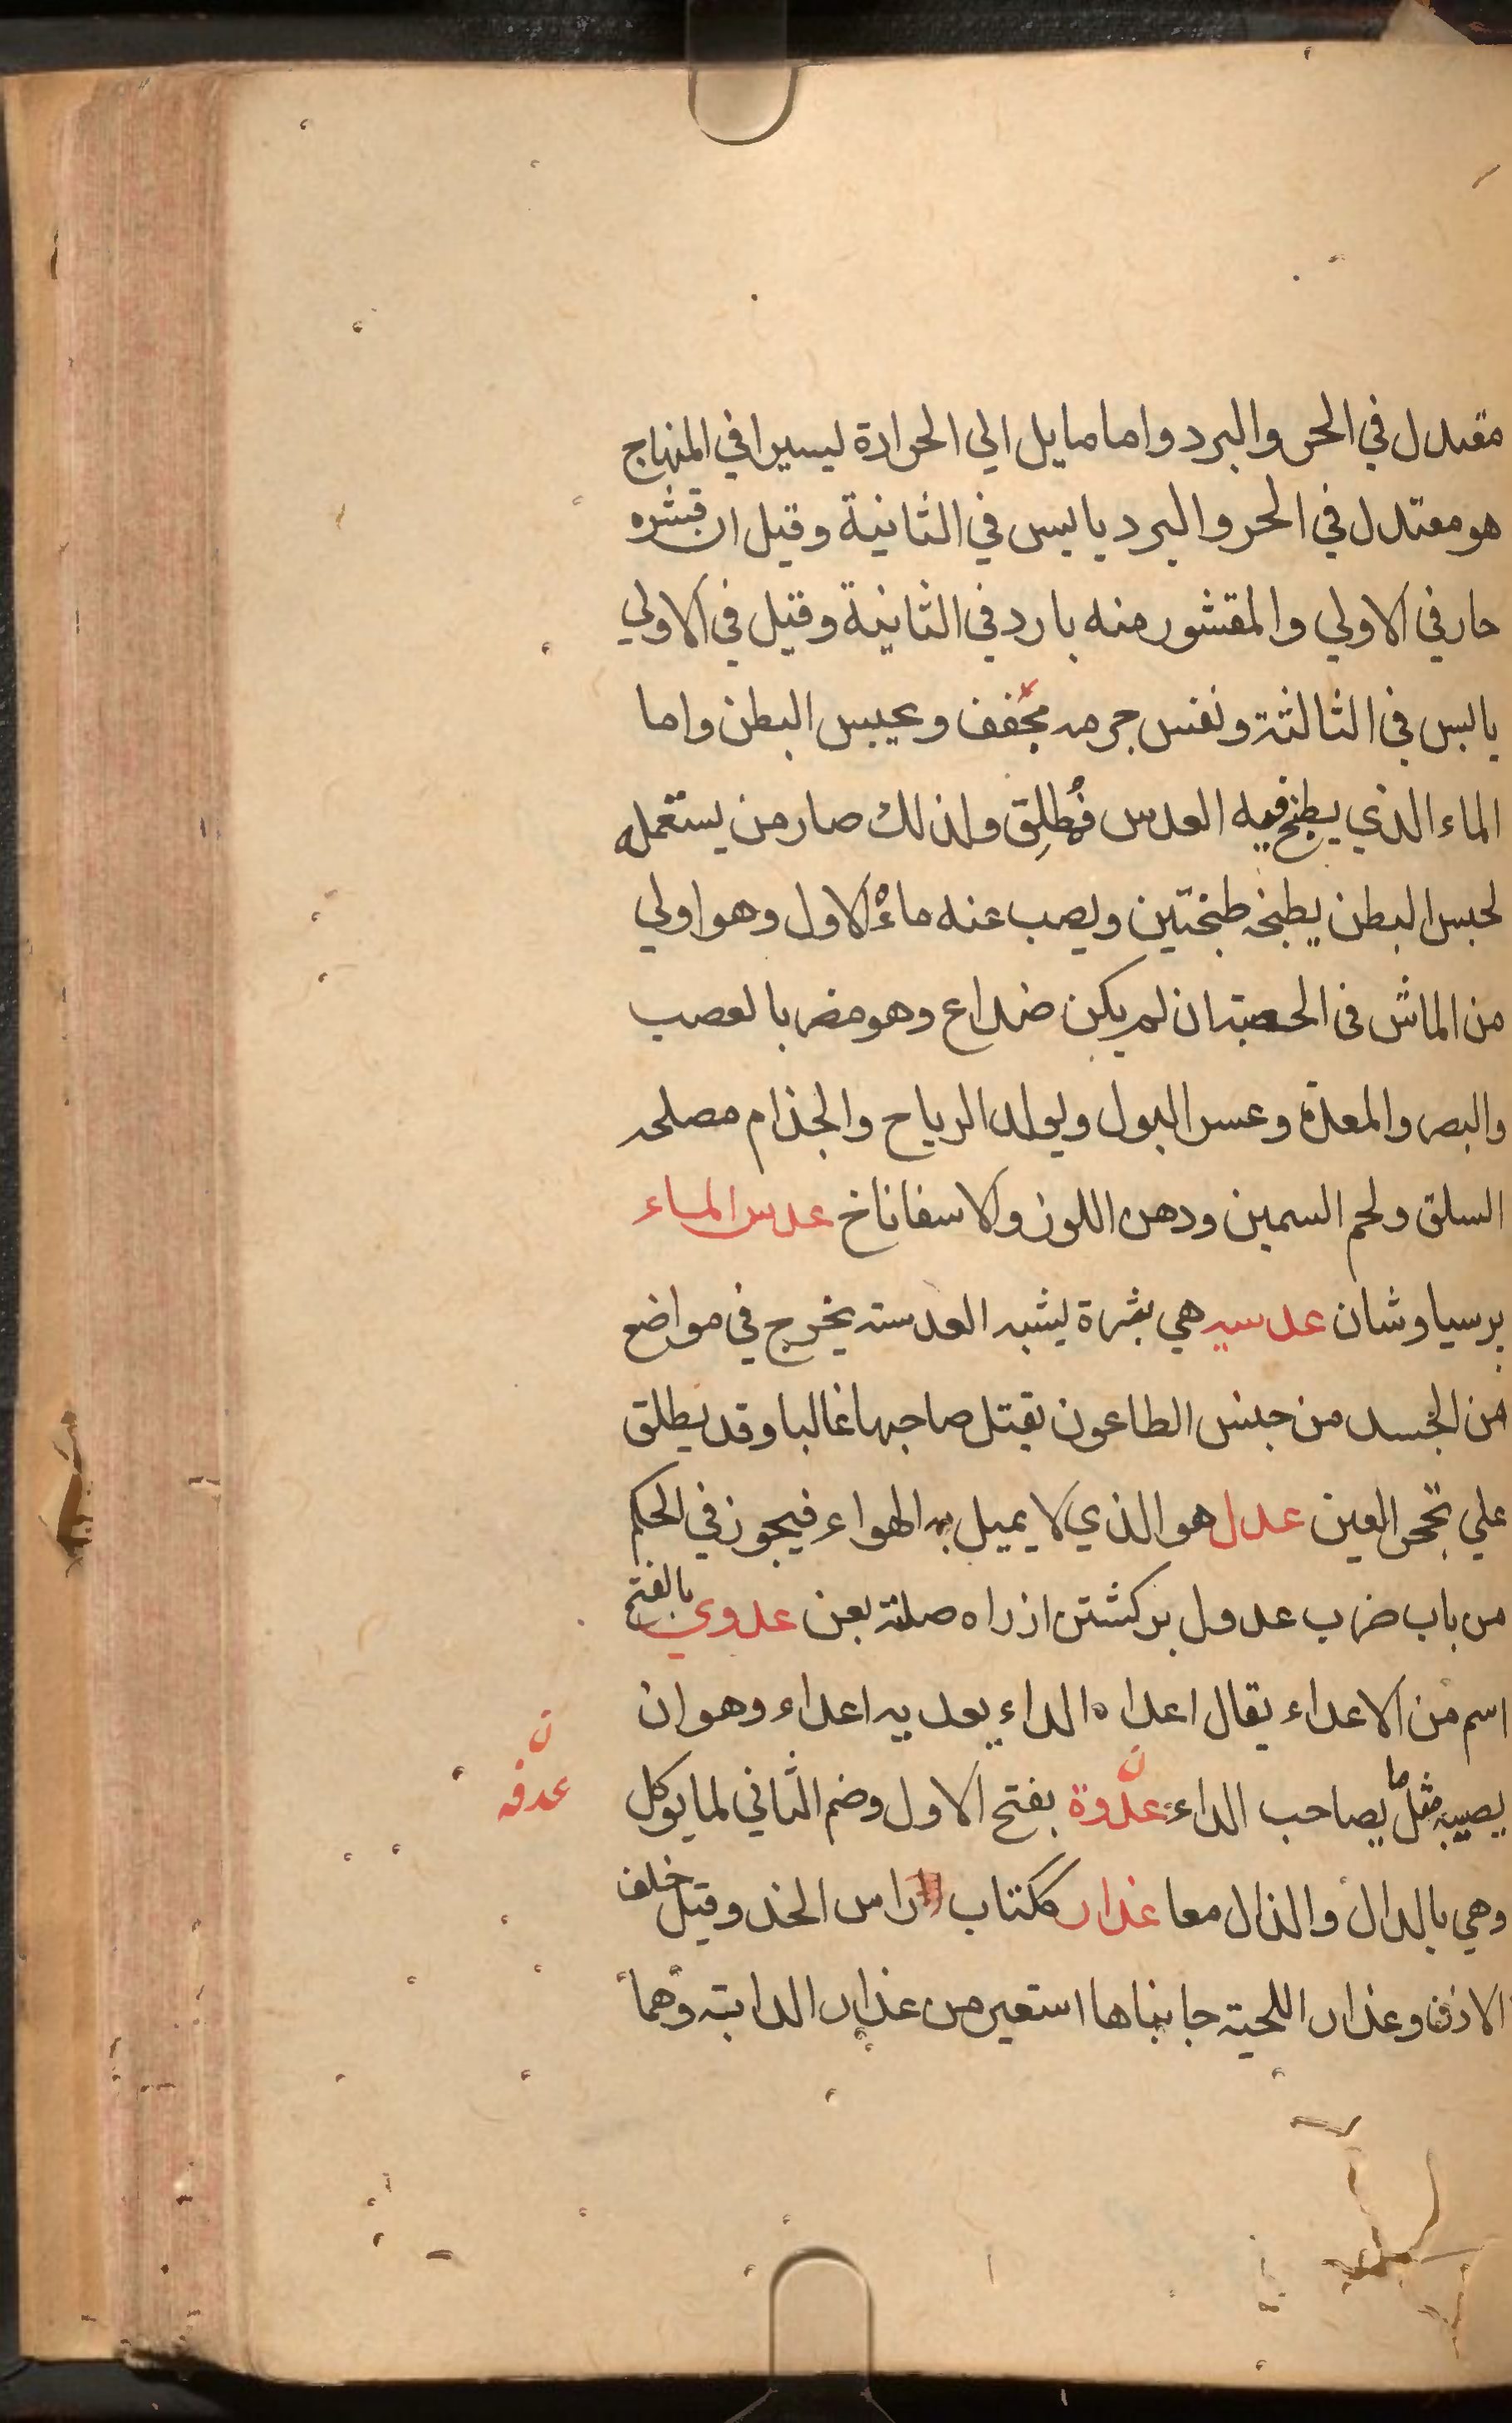 مقىدل في الحر والبرد واما مايل الي الحرارة ليسيرا في المنهاج
هو معتدل في الحر والبرد يابس في الثانية وقيل ان قشره
حار في الاولي والمقشور منه بارد في الثانية وقيل في الاولي
يابس في الثالثة ونفس جرمه مجفف و يحبس البطن واما
الماء الذي يطبخ فيه العدس فمُطلِق ولذلك صار من يستعمله
لحبس البطن يطبخه طبختين ويصب عنه ماءه الاول وهو اولي
من الماش في الحصبة ان لم يكن ضداع وهو مضر بالعصب
والبصر والمعدة وعسر البول ويولد الرياح والجذام مصلحه
السلق ولحم السمين ودهن اللوز والاسفاناخ عدس الماء
برسياوشان عدسيه هي بثرة يشبه العدسة يخرج في مواضع
من الجسد من جنس الطاعون يقتل صاحبها غالبا وقد يطلق
علي تحجر العين عدل هو الذي لا يميل به الهواء فيجوز في الحكم
من باب ضرب عدول بركشتن از راه صلة بعن عدوي بالفتح
اسم من الاعداء يقال اعداه الداء يعديه اعداء وهو ان
يصيبه مثل ما يصاحب الداء عدوة بفتح الاول وضم الثاني لما يوكل
ن
عدفه
وهي بالدال والذال معا عذار ككتاب راس الخد وقيل خلف
الاذن وعذار اللحية جانباها استعير من عذار الدابة وهما